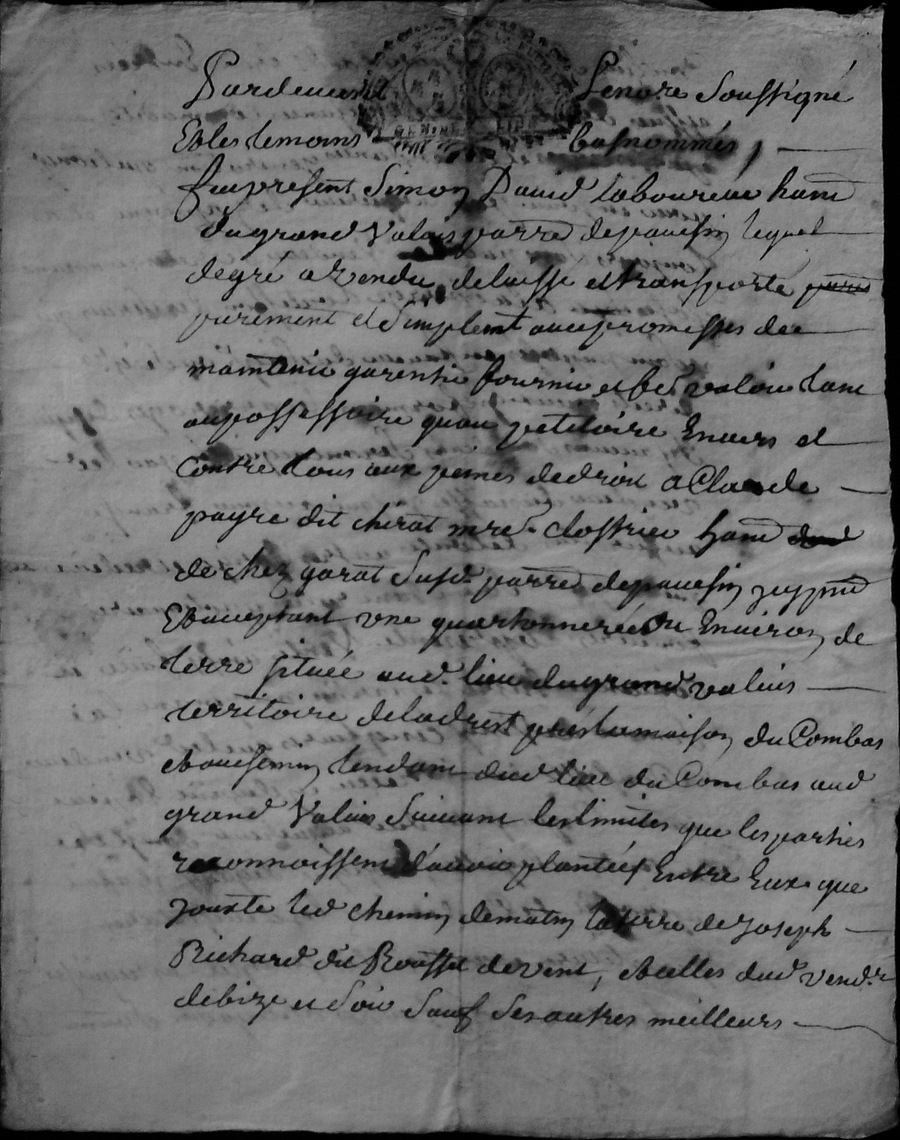 Pardevant Lenore Soussigné
Et les temoins bas nommés,
fut present Simon David laboureur habnt
du grand Valois parre de pouessin lequel
de gré a Vendu, delaisse et transporte
purement et Simplemt avec promesses de
maintenir garentir fournir et fe valoir tant
au possessoire quau petitoire Envers et
Contre tous aux peines de droit a Claude
payre dit chirat mre clostrier habnt
de chez garat Susd. parre de pouessin icy pnt
Et acceptant une quartonnerée ou Environ de
terre située aud. lieu du grand valois
territoire de ladrest près la maison du Combas
et tendant dud lieu du Combas aud
grand Valois Suivant les limites que les parties
reconnoissent d'avoir plantées Entre Eux que
jouxte led chemin de matin la terre de joseph
Richard dit Rousset de vent, et celles dud vendr
de bize et Soir Sauf Ses autres meilleurs